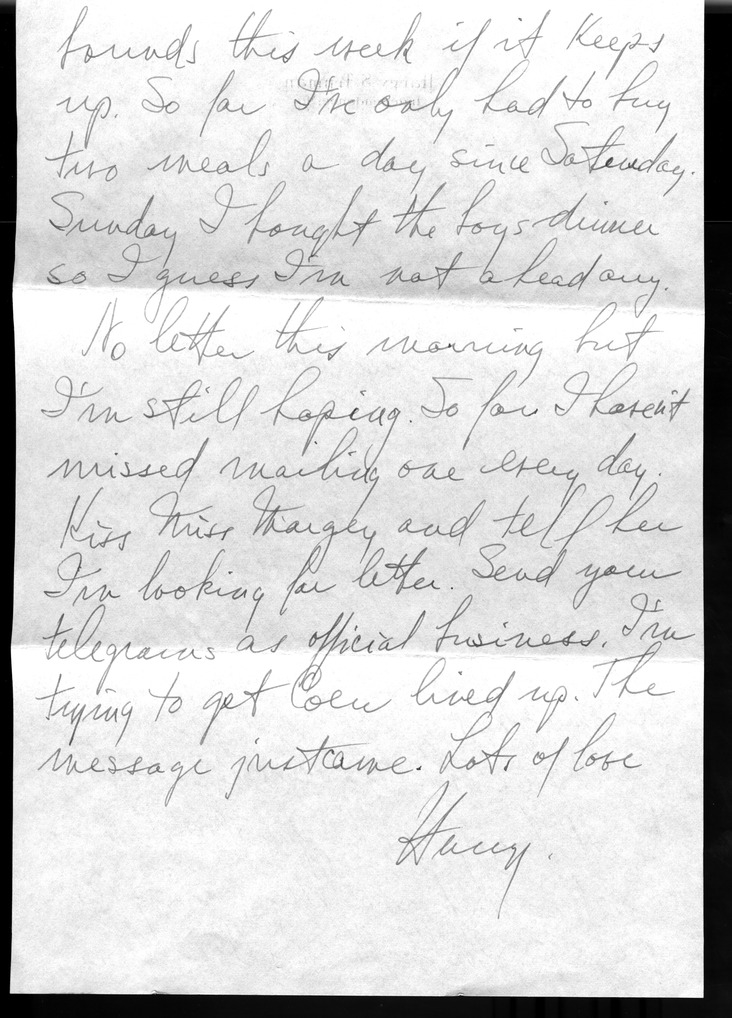 bounds this week if it keeps
up. So far I've only had to buy
two meals a day since Saturday.
Sunday I bought the boys dinner
so I guess I'm not ahead any.
No letter this morning but
I'm still hoping. So far I haven't
missed mailing one every day.
Kiss Miss Margey and tell her
I'm looking for letter. Send your
telegrams as official business. I'm
trying to get Coen lined up. The
message just came. Lots of love
Harry.